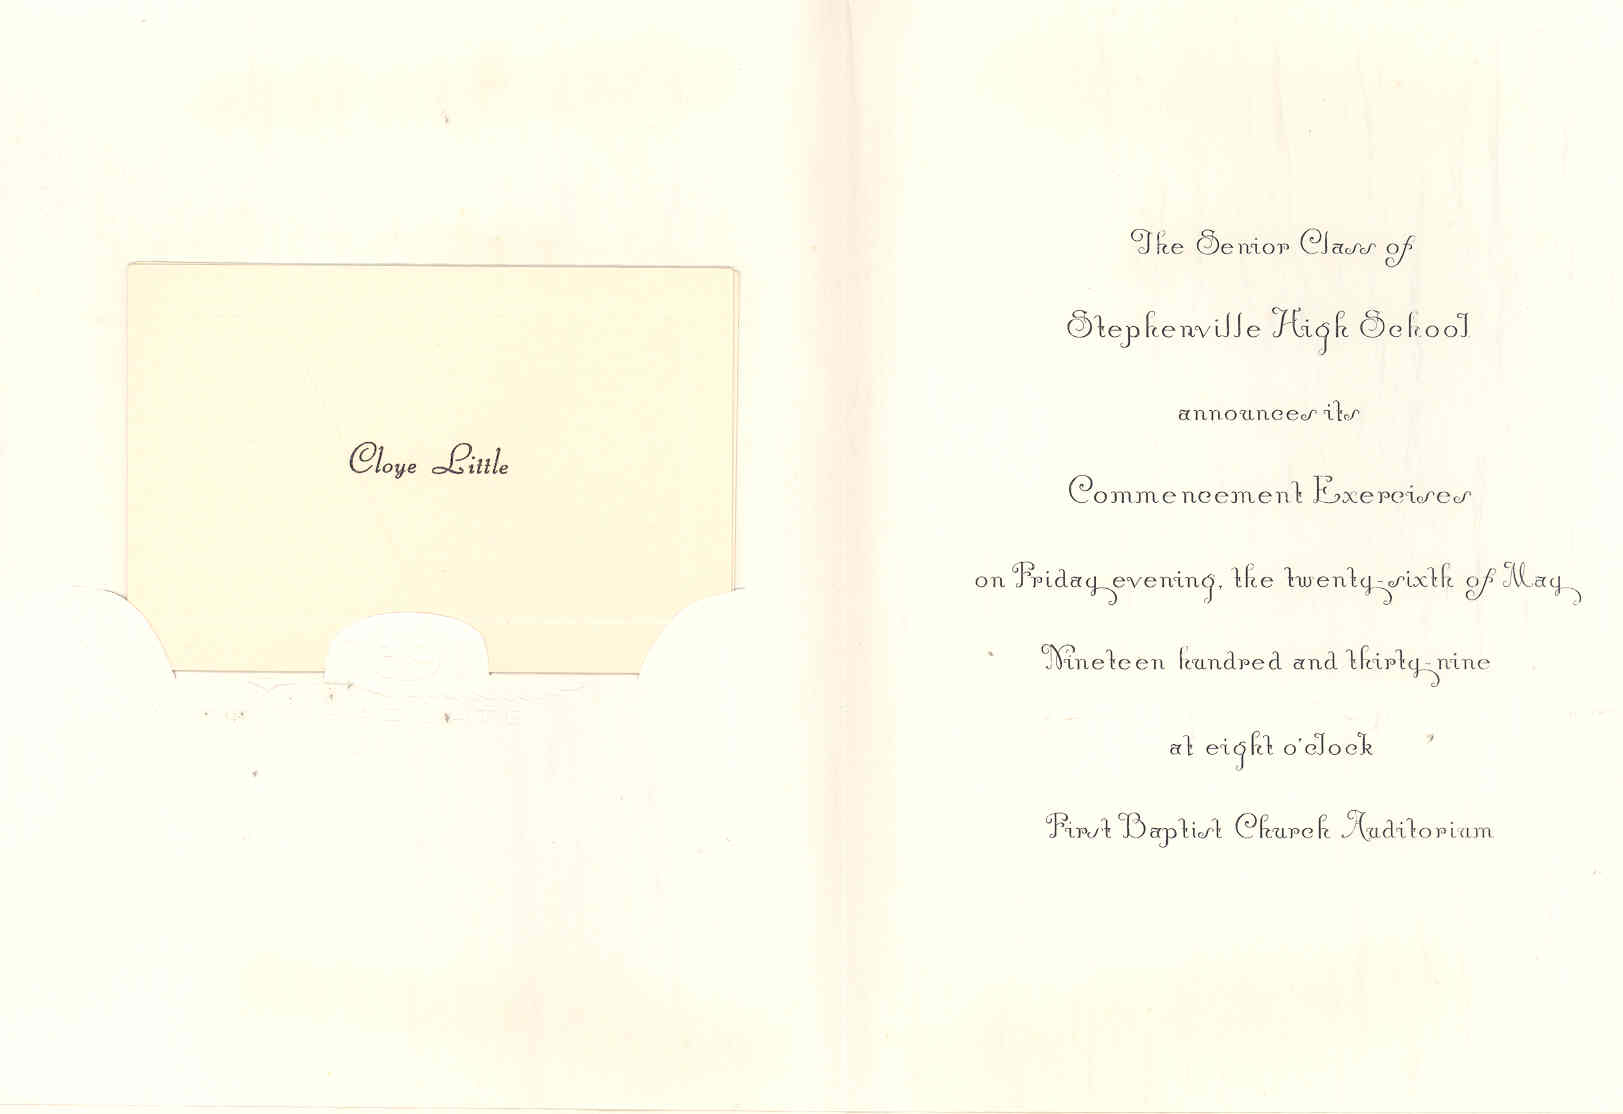 Cloye Little
The Senior Class of
Stephenville High School
announces its
Commencement Exercises
on Friday evening, the twenty-sixth of May
Nineteen hundred and thirty-nine
at eight o'clock
First Baptist Church Auditorium